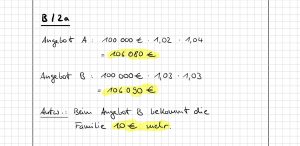 B / 2a
Angebot A : 100 000 € · 1,02 · 1,04
= 106 080 €
Angebot B : 100 000 € · 1,03 · 1,03
= 106 090 €
Antw.: Beim Angebot B bekommt die
Familie 10 € mehr.